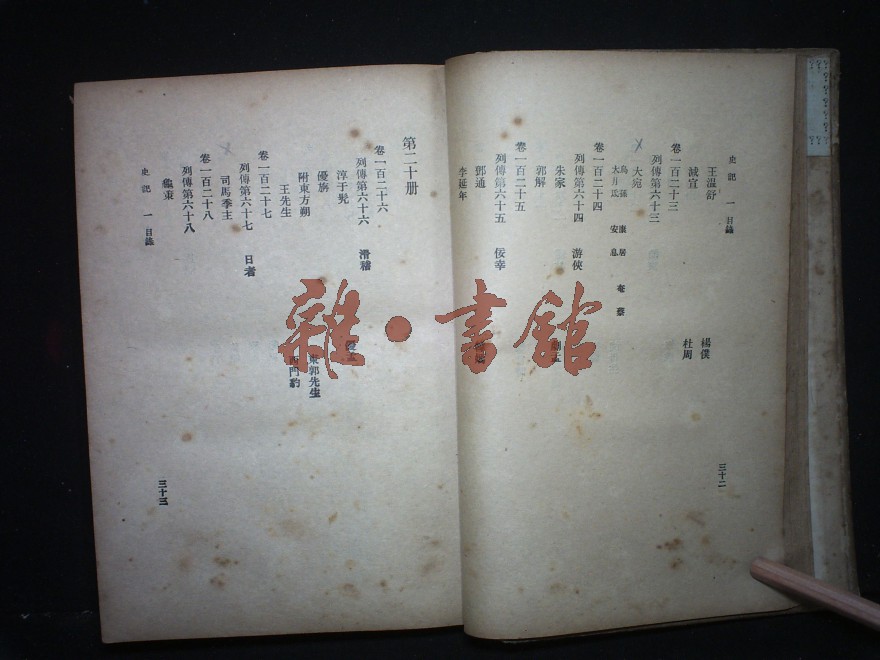 史記 一 目錄
王溫舒 楊僕
減宣 杜周
卷一百二十三
列傳第六十三
大宛
烏孫 康居 奄蔡
大月氏 安息
卷一百二十四
列傳第六十四 游俠
朱家
郭解
卷一百二十五
列傳第六十五 佞幸
鄧通
李延年
三十二
第二十册
卷一百二十六
列傳第六十六 滑稽
淳于髡
優旃
附東方朔 東郭先生
王先生 西門豹
卷一百二十七
列傳第六十七 日者
司馬季主
卷一百二十八
列傳第六十八
龜策
史記 一 目錄
三十三
雜·書館